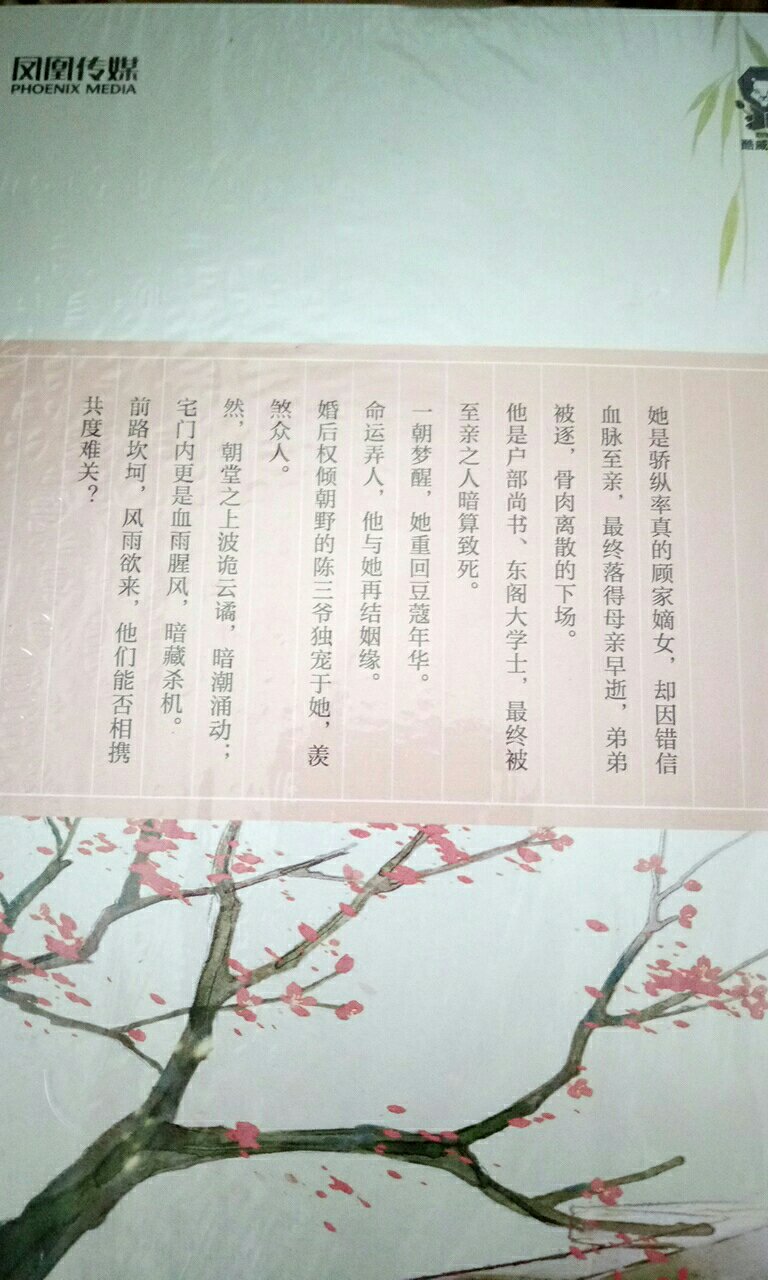 凤凰传媒
PHOENIX MEDIA
酷威
她是骄纵率真的顾家嫡女，却因错信
血脉至亲，最终落得母亲早逝，弟弟
被逐，骨肉离散的下场。
他是户部尚书、东阁大学士，最终被
至亲之人暗算致死。
一朝梦醒，她重回豆蔻年华。
命运弄人，他与她再结姻缘。
婚后权倾朝野的陈三爷独宠于她，羡
煞众人。
然，朝堂之上波诡云谲，暗潮涌动；
宅门内更是血雨腥风，暗藏杀机。
前路坎坷，风雨欲来，他们能否相携
共度难关？